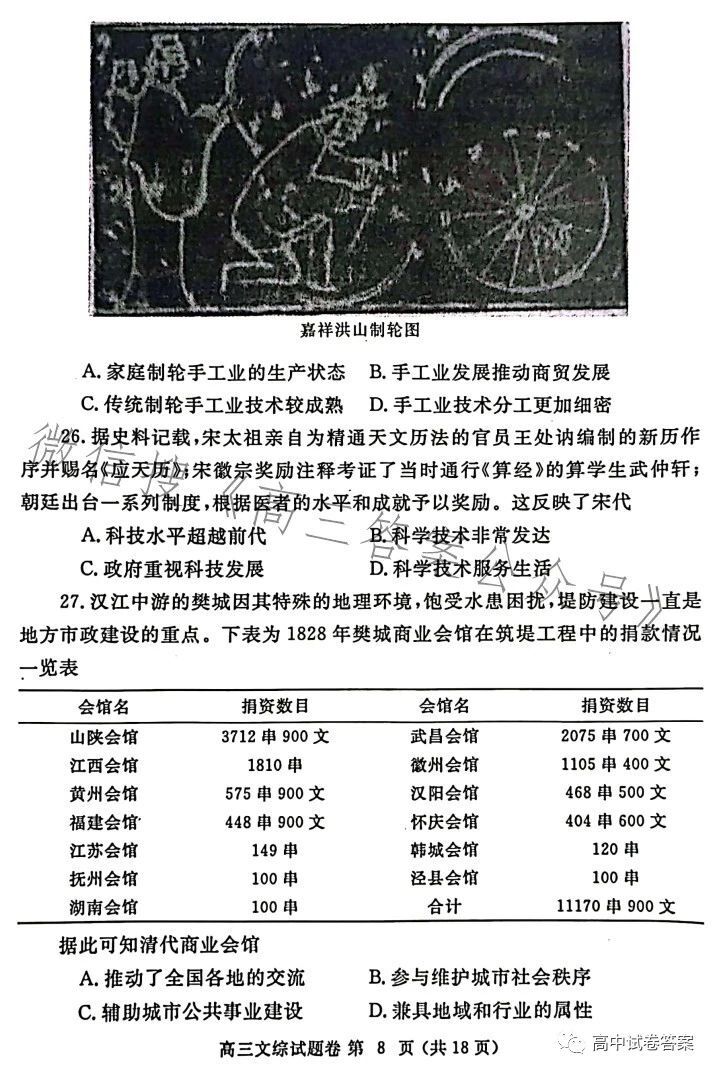 嘉祥洪山制轮图
A. 家庭制轮手工业的生产状态 B. 手工业发展推动商贸发展
C. 传统制轮手工业技术较成熟 D. 手工业技术分工更加细密
26. 据史料记载,宋太祖亲自为精通天文历法的官员王处讷编制的新历作
序并赐名《应天历》;宋徽宗奖励注释考证了当时通行《算经》的算学生武仲轩;
朝廷出台一系列制度,根据医者的水平和成就予以奖励。这反映了宋代
A. 科技水平超越前代 B. 科学技术非常发达
C. 政府重视科技发展 D. 科学技术服务生活
27. 汉江中游的樊城因其特殊的地理环境,饱受水患困扰,堤防建设一直是
地方市政建设的重点。下表为1828年樊城商业会馆在筑堤工程中的捐款情况
一览表
会馆名 捐资数目 会馆名 捐资数目
山陕会馆 3712串900文 武昌会馆 2075串700文
江西会馆 1810串 徽州会馆 1105串400文
黄州会馆 575串900文 汉阳会馆 468串500文
福建会馆 448串900文 怀庆会馆 404串600文
江苏会馆 149串 韩城会馆 120串
抚州会馆 100串 泾县会馆 100串
湖南会馆 100串 合计 11170串900文
据此可知清代商业会馆
A. 推动了全国各地的交流 B. 参与维护城市社会秩序
C. 辅助城市公共事业建设 D. 兼具地域和行业的属性
高三文综试题卷 第 8 页(共18页)
微信搜《高三答案公众号》
高中试卷答案